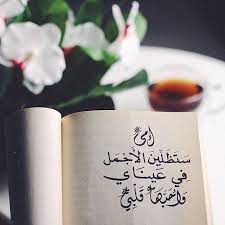 أمي
سَتظلّينَ الأجمَل
في عَينَاي
وَأحَبّهَا قَلبي